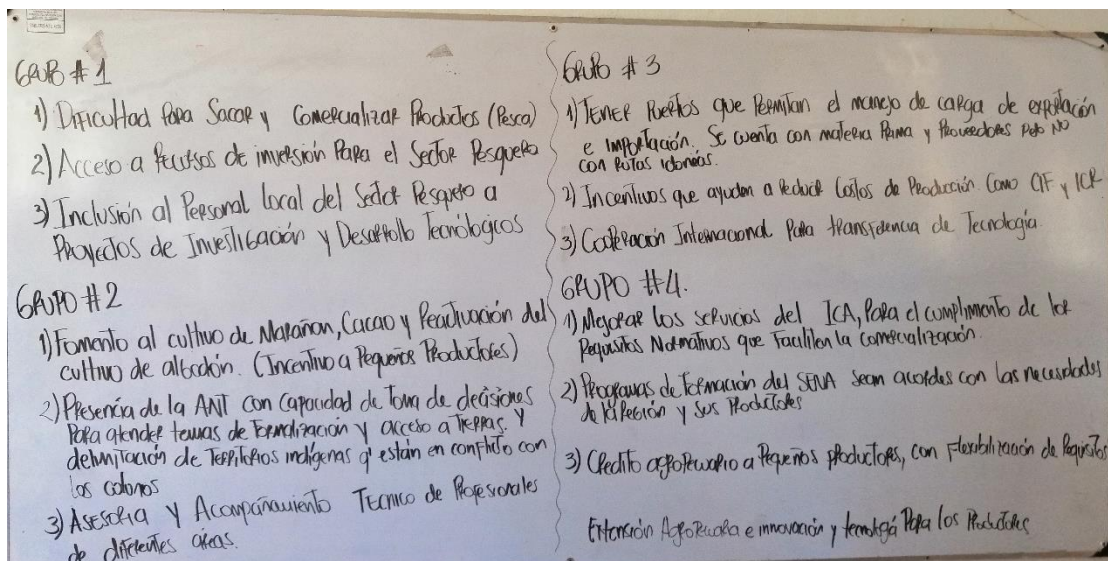 GRUPO # 1
1) Dificultad Para Sacar y Comercializar Productos (Pesca)
2) Acceso a Recursos de inversión Para el Sector Pesquero
3) Inclusión al Personal local del Sector Pesquero a
Proyectos de Investigación y Desarrollo Tecnológicos
GRUPO #2
1) Fomento al cultivo de Marañon, Cacao y Reactivación del
cultivo de algodón. (Incentivo a Pequeños Productores)
2) Presencia de la ANT con Capacidad de Toma de decisiones
Para atender temas de Formalización y acceso a Tierras. Y
delimitación de Territorios indígenas q' están en conflicto con
los colonos
3) Asesoria y Acompañamiento Tecnico de Profesionales
de diferentes areas.
GRUPO # 3
1) Tener Puertos que Permitan el manejo de carga de exportación
e importación. Se cuenta con materia Prima y Proveedores pero NO
con Rutas idoneas.
2) Incentivos que ayuden a Reducir Costos de Producción como CIF y ICR
3) Cooperación Internacional Para transferencia de Tecnología.
GRUPO #4.
1) Mejorar los servicios del ICA, Para el cumplimento de los
Requisitos Normativos que Faciliten la comercialización.
2) Programas de Formación del SENA sean acordes con las necesidades
de la Región y sus Productores
3) Credito agropecuario a Pequeños productores, con Flexibilización de Requisitos
Extensión Agropecuaria e innovación y tecnología Para los Productores